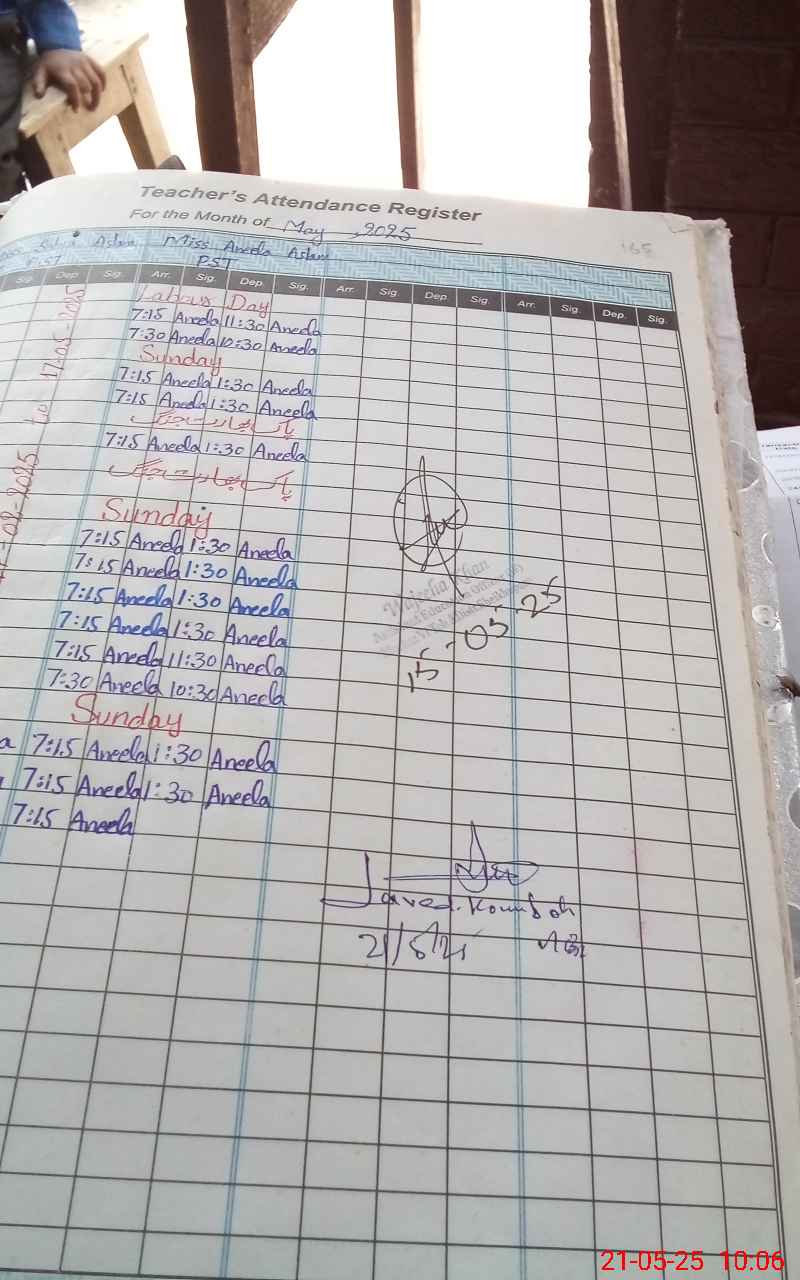 Teacher's Attendance Register
For the Month of May, 2025
168
Miss Aneela Aslam
PST
Sig. Dep. Sig. Arr. Sig. Dep. Sig. Arr. Sig. Dep. Sig. Arr. Sig. Dep. Sig.
Labour Day
7:15 Aneela 11:30 Aneela
7:30 Aneela 10:30 Aneela
Sunday
7:15 Aneela 1:30 Aneela
7:15 Aneela 1:30 Aneela
پاک بھارت جنگ
7:15 Aneela 1:30 Aneela
پاک بھارت جنگ
Sunday
7:15 Aneela 1:30 Aneela
7:15 Aneela 1:30 Aneela
7:15 Aneela 1:30 Aneela
7:15 Aneela 1:30 Aneela
7:15 Aneela 11:30 Aneela
7:30 Aneela 10:30 Aneela
Sunday
7:15 Aneela 1:30 Aneela
7:15 Aneela 1:30 Aneela
7:15 Aneela
2025 to 17-05-2025
Wajeeha Khan
Assistant Education Officer
15-05-25
Javed.
21/5/25
21-05-25 10:06